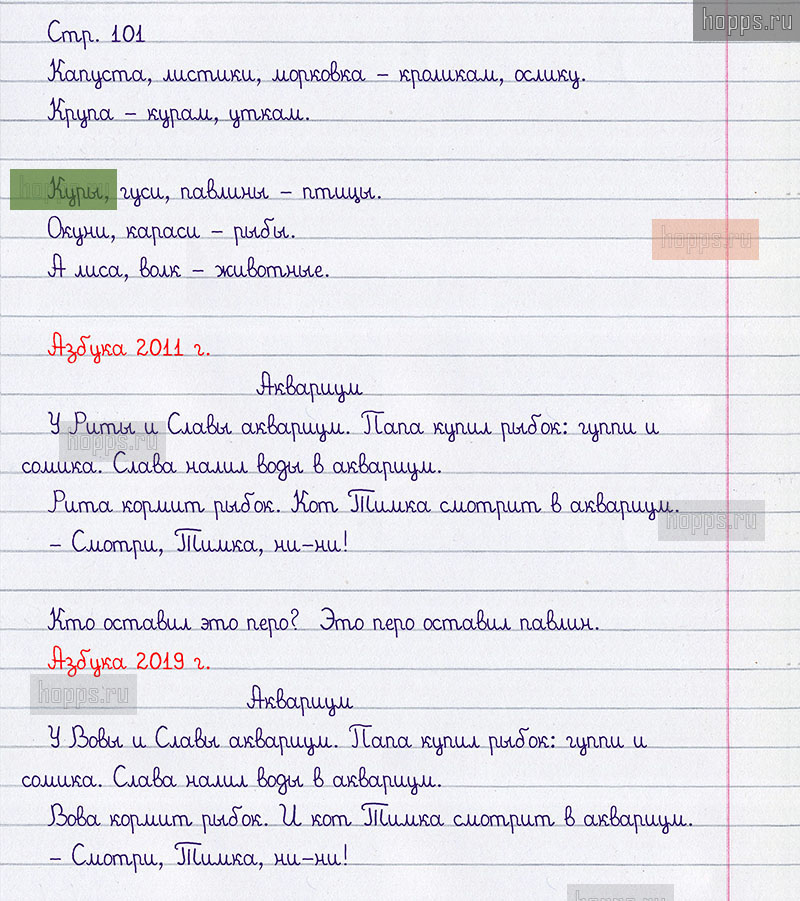 hopps.ru
Стр. 101
Капуста, листики, морковка – кроликам, ослику.
Крупа – курам, уткам.
hopps.ru
Куры, гуси, павлины – птицы.
Окуни, караси – рыбы.
hopps.ru
А лиса, волк – животные.
Азбука 2011 г.
Аквариум
У Риты и Славы аквариум. Папа купил рыбок: гуппи и
hopps.ru
сомика. Слава налил воды в аквариум.
Рита кормит рыбок. Кот Тимка смотрит в аквариум.
hopps.ru
– Смотри, Тимка, ни-ни!
Кто оставил это перо? Это перо оставил павлин.
Азбука 2019 г.
hopps.ru
Аквариум
У Вовы и Славы аквариум. Папа купил рыбок: гуппи и
сомика. Слава налил воды в аквариум.
Вова кормит рыбок. И кот Тимка смотрит в аквариум.
– Смотри, Тимка, ни-ни!
hopps.ru